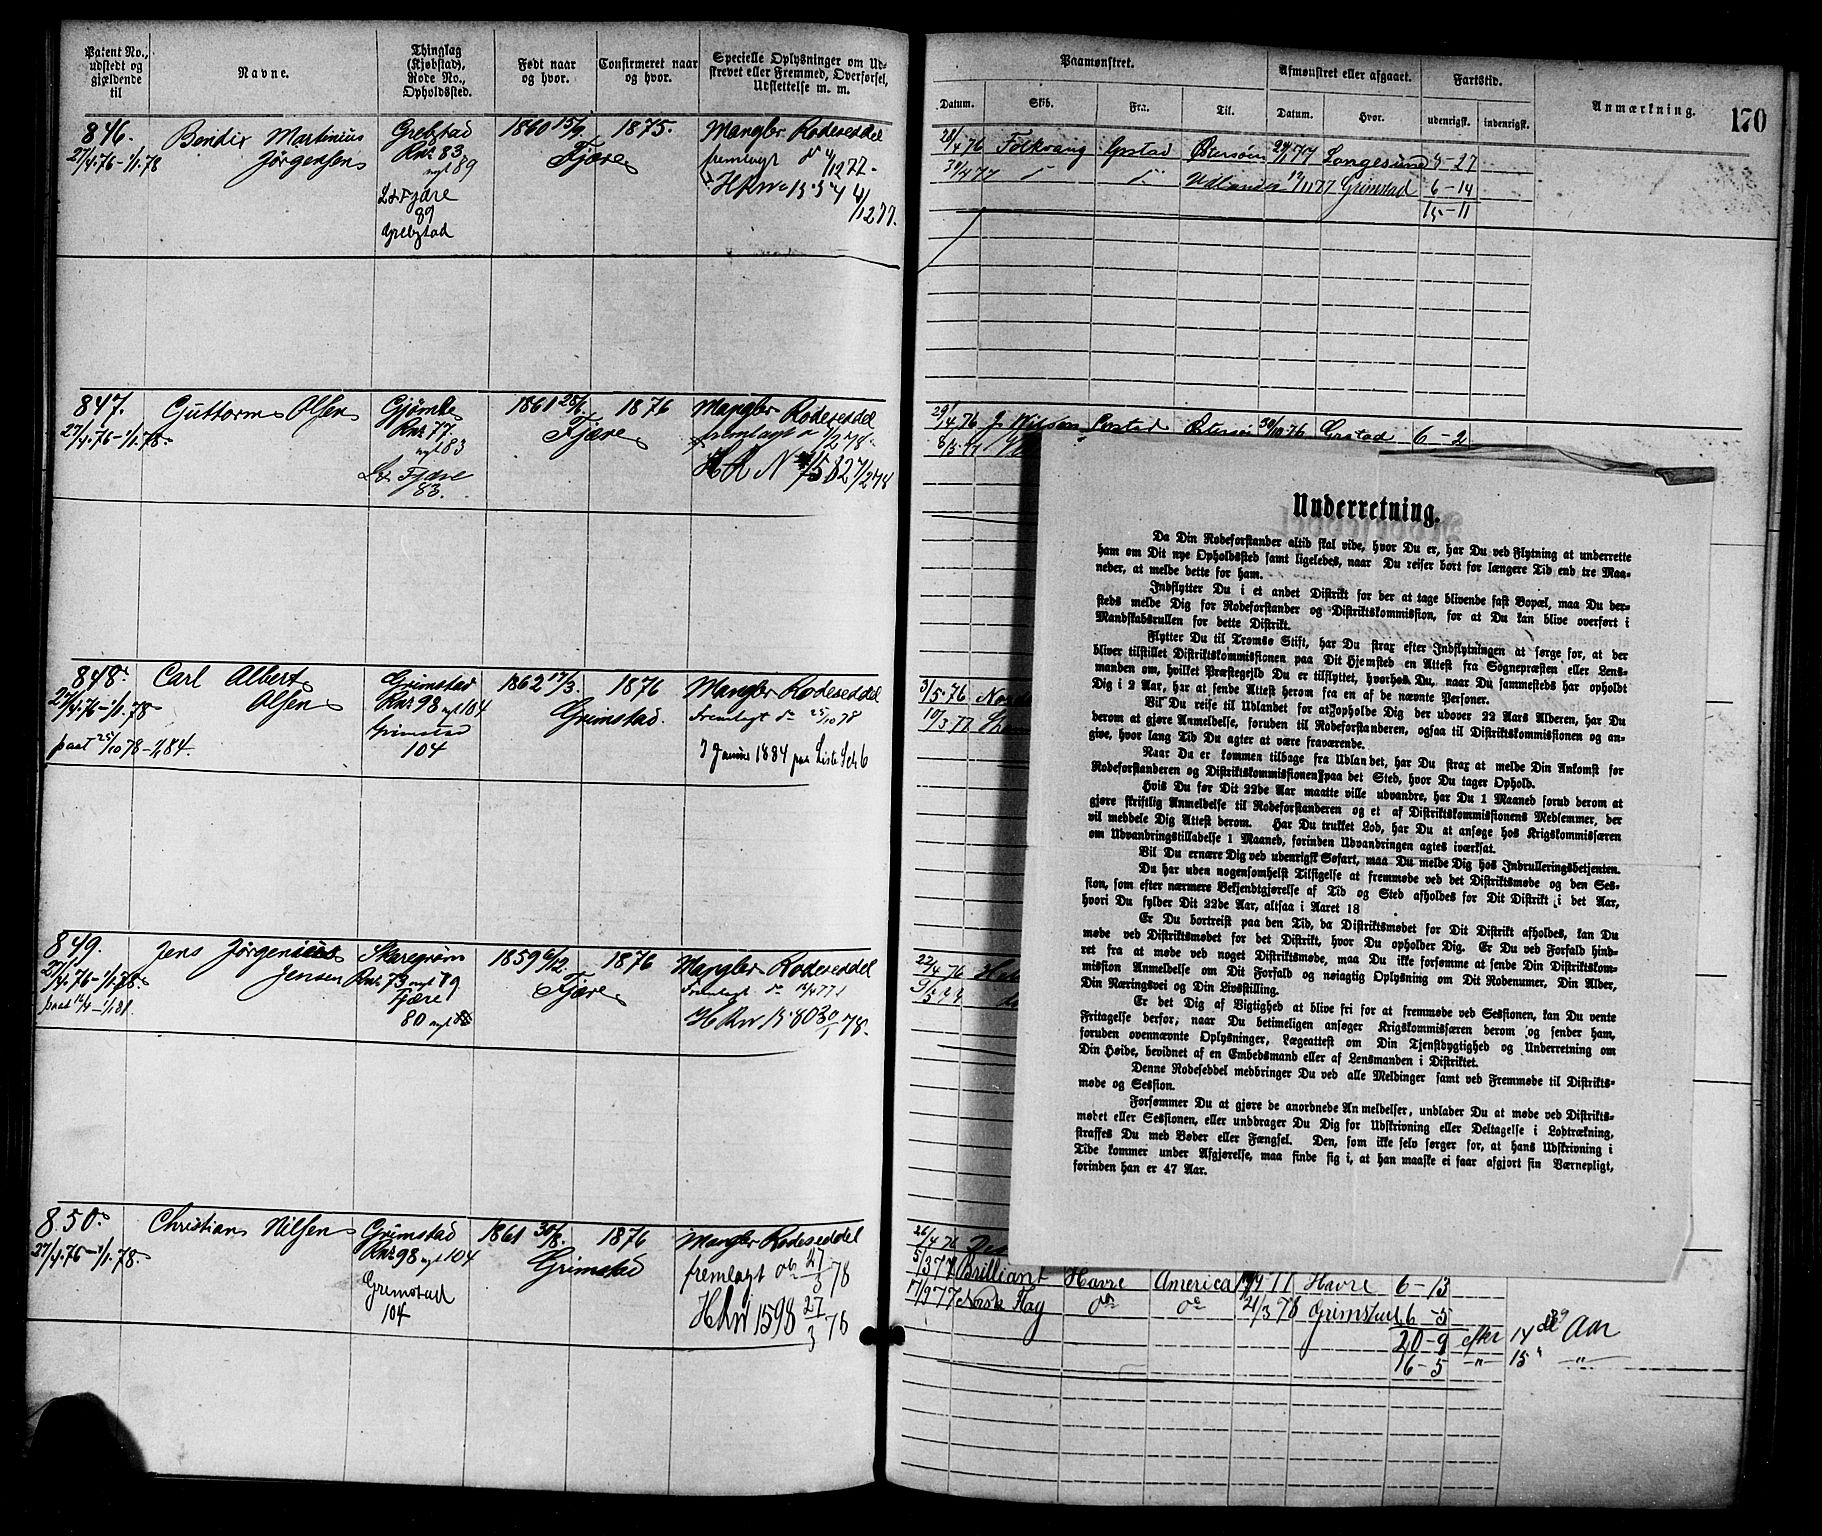 Patent No., udstedt og gjældende til
Navne.
Thinglag (Kjøbstad), Rode No., Opholdssted.
Født naar og hvor.
Confirmeret naar og hvor.
Specielle Oplysninger om Udskrevet eller Fremmed, Overførsel, Udslettelse m. m.
846.
27/4.76-1/1.78
Bendix Martinius
Jørgensen
Grebstad
Rn: 83
nyt 89
Fjære
89
Grebstad
1860 15/9
Fjære
1875.
Mangler Rodeseddel
fremlagt
847.
27/4.76-1/1.78.
Guttorm Olsen
Rn: 77.
nyt 83
Fjære
83.
1861 28/6
Fjære
1876
Mangler Rodeseddel
fremlagt
848.
27/4.76-1/1.78
paat 25/10 78-1/1.84.
Carl Albert
Olsen
Grimstad
Rn: 98 nyt 104
Grimstad
104
1862 17/3.
Grimstad.
1876
Mangler Rodeseddel
Fremlagt do 25/10 78
7 Januar 1884 paa Liste
849.
27/4.76-1/1.78.
Jens Jørgenius
Jensen
Rn: 73 nyt 79
Fjære
80 nyt
1859 6/12
Fjære
1876
Mangler Rodeseddel
Fremlagt do
850.
27/4.76-1/1.78.
Christian Nilsen
Grimstad
Rn: 98 nyt 104
Grimstad
104
1861 30/8.
Grimstad
1876
Mangler Rodeseddel
fremlagt do 27/3 78
1598 27/3 78
Paamønstret.
Afmønstret eller afgaaet.
Fartstid.
Anmærkning.
170
Datum.
Skib.
Fra.
Til.
Datum.
Hvor.
udenrigsk.
indenrigsk.
28/4 76 Folkvang Grstad Østersøen 24/1 77 Langesund 8-27
Udlandet Grimstad 6-14
15-11
29/4 76 J. Wilson Grstad Østersø 30/10 76 Grstad 6-2
3/5 76
10/3 77
22/4 76
26/4 76
5/3 77 Brilliant Havre America 14/9 77 Havre 6-13
17/9 77 Norsk Flag do do 21/3 78 Grimstad 6-5
20-9 efter 14 Aar
16-5 -"- 15 -"-
Underretning.
Da Din Rodeforstander altid skal vide, hvor Du er, har Du ved Flytning at underrette
ham om Dit nye Opholdssted samt ligeledes, naar Du reiser bort for længere Tid end tre Maa-
neder, at melde dette for ham.
Indflytter Du i et andet Distrikt for der at tage blivende fast Bopæl, maa Du der-
steds melde Dig for Rodeforstander og Distriktskommission, for at Du kan blive overført i
Mandskabsrullen for dette Distrikt.
Flytter Du til Tromsø Stift, har Du strax efter Indflytningen at sørge for, at der
bliver tilstillet Distriktskommissionen paa Dit Hjemsted en Attest fra Sognepræsten eller Lens-
manden om, hvilket Præstegjeld Du er tilflyttet, hvorhos Du, naar Du sammesteds har opholdt
Dig i 2 Aar, har at sende Attest herom fra en af de nævnte Personer.
Vil Du reise til Udlandet for at opholde Dig der udover 22 Aars Alderen, har Du
derom at gjøre Anmeldelse, foruden til Rodeforstanderen, ogsaa til Distriktskommissionen og an-
give, hvor lang Tid Du agter at være fraværende.
Naar Du er kommen tilbage fra Udlandet, har Du strax at melde Din Ankomst for
Rodeforstanderen og Distriktskommissionen paa det Sted, hvor Du tager Ophold.
Hvis Du før Dit 22de Aar maatte ville udvandre, har Du 1 Maaned forud derom at
gjøre skriftlig Anmeldelse til Rodeforstanderen og et af Distriktskommissionens Medlemmer, der
vil meddele Dig Attest derom. Har Du trukket Lod, har Du at ansøge hos Krigskommissæren
om Udvandringstilladelse 1 Maaned, forinden Udvandringen agtes iværksat.
Vil Du ernære Dig ved udenrigsk Søfart, maa Du melde Dig hos Indrulleringsbetjenten.
Du har uden nogensomhelst Tilsigelse at fremmøde ved det Distriktsmøde og den Ses-
sion, som efter nærmere Bekjendtgjørelse af Tid og Sted afholdes for Dit Distrikt i det Aar,
hvori Du fylder Dit 22de Aar, altsaa i Aaret 18
Er Du bortreist paa den Tid, da Distriktsmødet for Dit Distrikt afholdes, kan Du
møde ved Distriktsmødet for det Distrikt, hvor Du opholder Dig. Er Du ved Forfald hind-
ret fra at møde ved noget Distriktsmøde, maa Du ikke forsømme at sende Din Distriktskom-
mission Anmeldelse om Dit Forfald og nøiagtig Oplysning om Dit Rodenumer, Din Alder,
Din Næringsvei og Din Livsstilling.
Er det Dig af Vigtighed at blive fri for at fremmøde ved Sessionen, kan Du vente
Fritagelse derfor, naar Du betimeligen ansøger Krigskommissæren derom og sender ham,
foruden ovennævnte Oplysninger, Lægeattest om Din Tjenstdygtighed og Underretning om
Din Høide, bevidnet af en Embedsmand eller af Lensmanden i Distriktet.
Denne Rodeseddel medbringer Du ved alle Meldinger samt ved Fremmøde til Distrikts-
møde og Session.
Forsømmer Du at gjøre de anordnede Anmeldelser, undlader Du at møde ved Distrikts-
mødet eller Sessionen, eller unddrager Du Dig for Udskrivning eller Deltagelse i Lodtrækning,
straffes Du med Bøder eller Fængsel. Den, som ikke selv sørger for, at hans Udskrivning i
Tide kommer under Afgjørelse, maa finde sig i, at han maaske ei faar afgjort sin Værnepligt,
forinden han er 47 Aar.